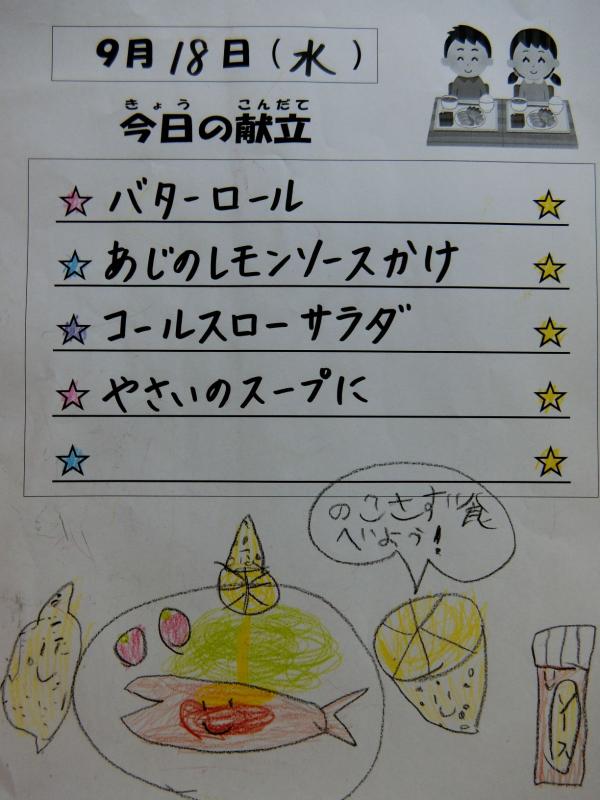 9月18日(水)
きょう こんだて
今日の献立
バターロール
あじのレモンソースかけ
コールスローサラダ
やさいのスープに
のこさず食
べよう!
ソース